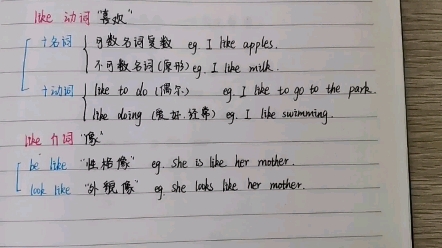 like 动词 "喜欢"
+名词 可数名词复数 eg. I like apples.
不可数名词(原形) eg. I like milk.
+动词 like to do (偶尔) eg. I like to go to the park.
like doing (爱好.经常) eg. I like swimming.
like 介词 "像"
be like "性格像" eg. she is like her mother.
look like "外貌像" eg. she looks like her mother.